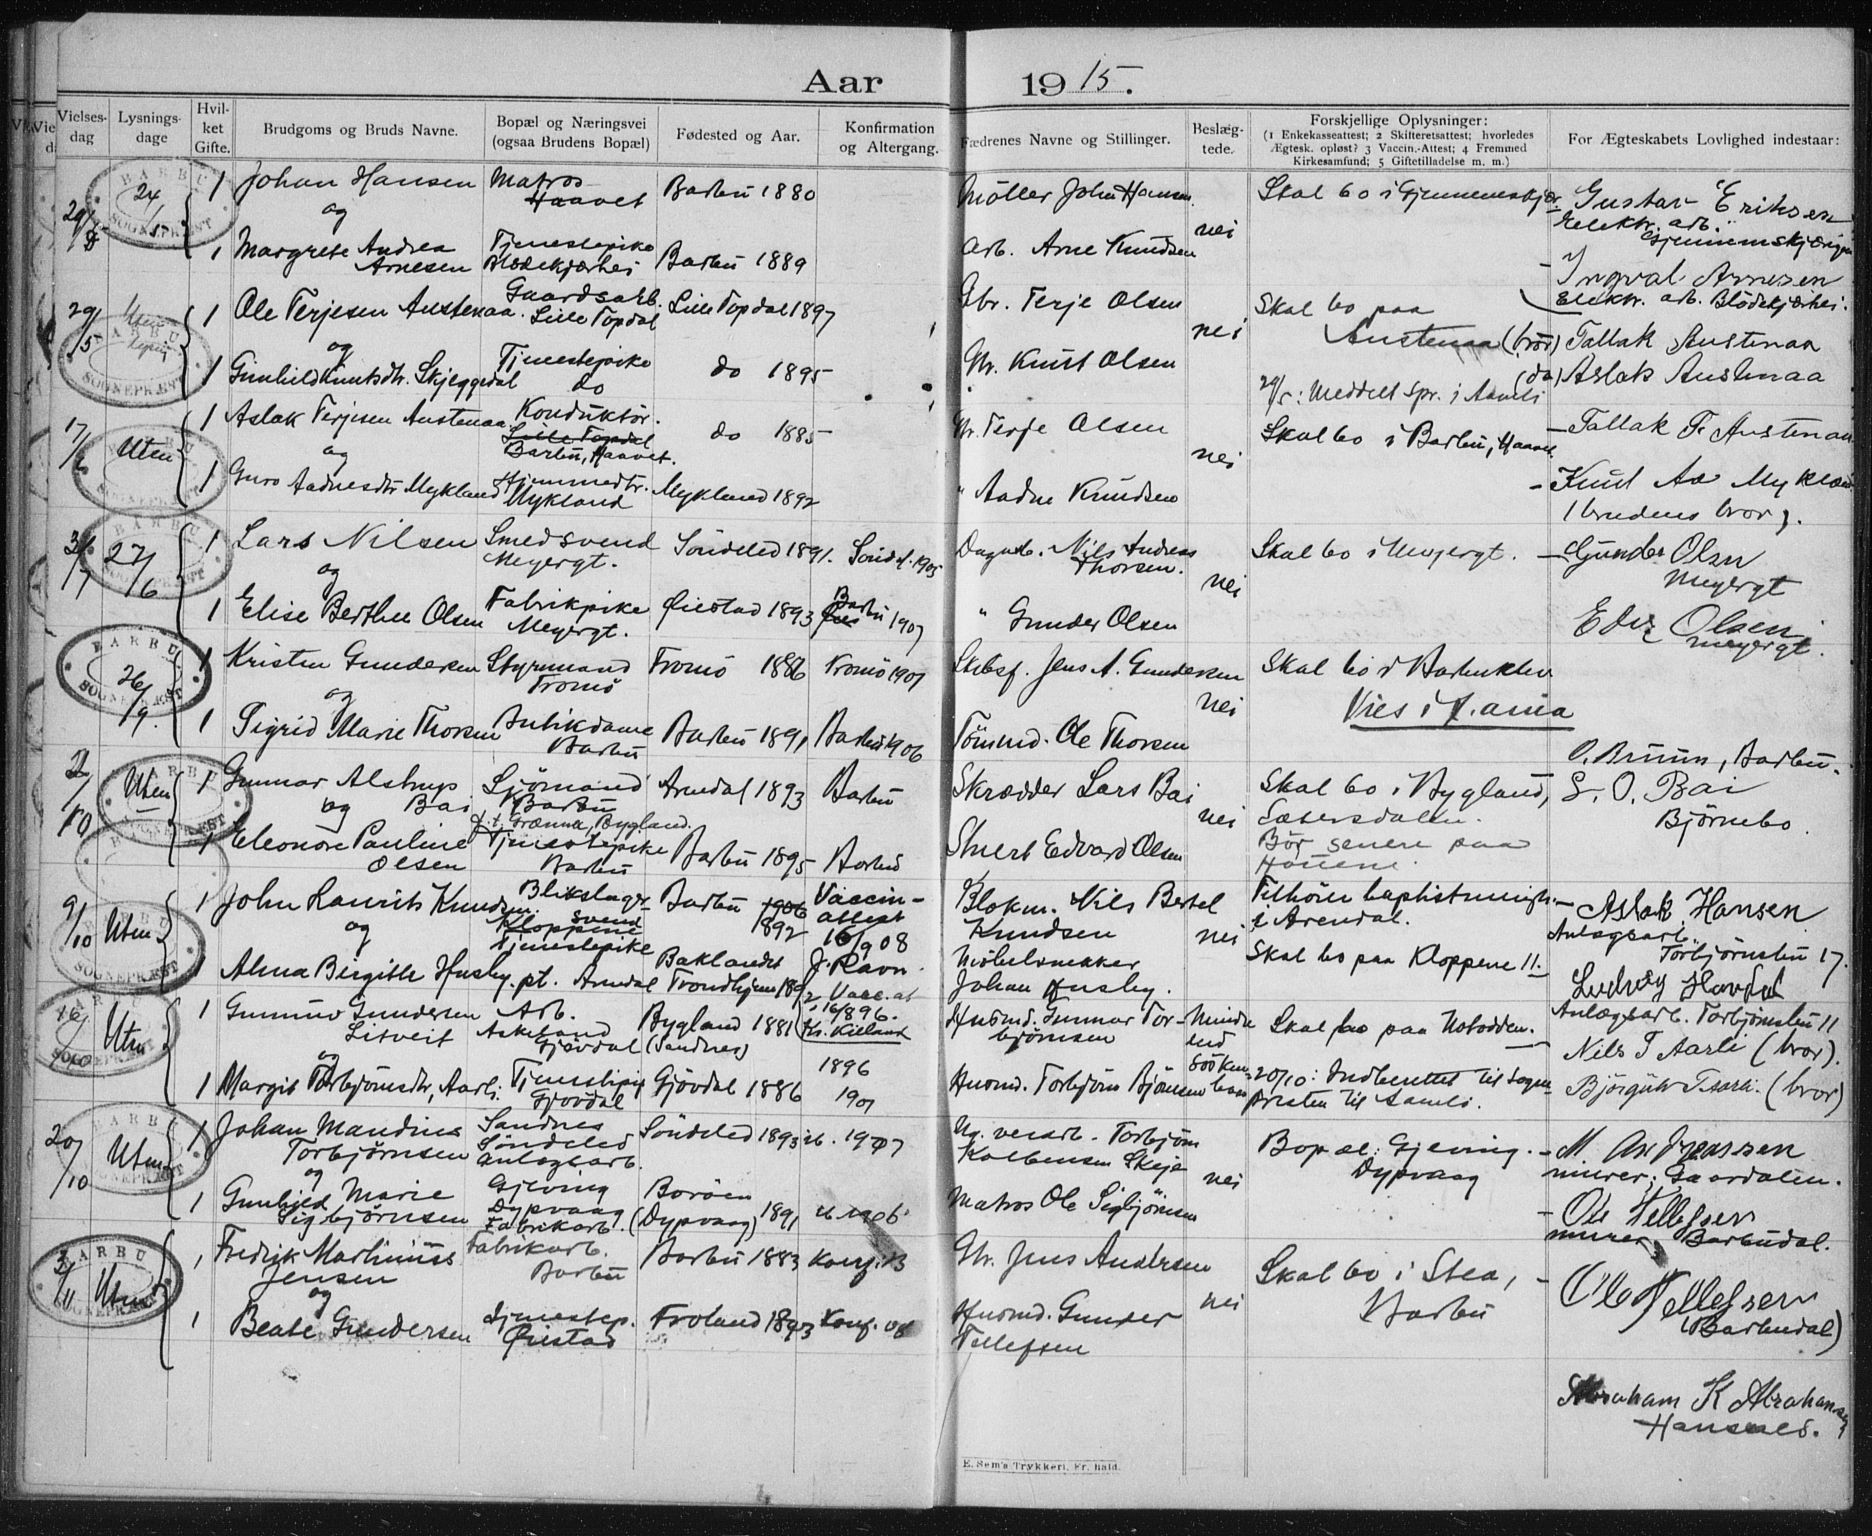 Aar 1915.
Vielses-dag
Lysnings-dage
Hvil-ket Gifte.
Brudgoms og Bruds Navne.
Bopæl og Næringsvei (ogsaa Brudens Bopæl)
Fødested og Aar.
Konfirmation og Altergang.
Fædrenes Navne og Stillinger.
Beslæg-tede.
Forskjellige Oplysninger:
(1 Enkekasseattest; 2 Skifteretsattest; hvorledes Ægtesk. opløst? 3 Vaccin.-Attest; 4 Fremmed Kirkesamfund; 5 Giftetilladelse m. m.)
For Ægteskabets Lovlighed indestaar:
BARBU SOGNEPRÆST
24/1
1 Johan Hansen Matros Haavet Barbu 1880 Møller John Hansen Skal bo i Gjennemskjær. Gustav Eriksen
og nei Elektr. arb. Gjennemskjæringen
1 Margrete Andrea Arnesen Tjenestepike Blødekjærhei Barbu 1889 Arb. Arne Knudsen Ingval Arnesen
Elektr. arb. Blödekjærhei.
29/5 Uten 1 Ole Terjesen Austenaa. Gaardsarb. Lille Topdal Lille Topdal 1897 Gbr. Terje Olsen Skal bo paa Austenaa (bror) Tallak Austenaa
og nei
1 Gunhild Knutsdtr. Skjeggedal Tjenestepike do do 1895 Gbr. Knut Olsen (do) Aslak Austenaa
29/5: Meddelt Spr. i Aamli
17/6 Uten 1 Aslak Terjesen Austenaa Konduktør. Lille Topdal Barbu, Haavet. do 1885 Gbr. Terje Olsen Skal bo i Barbu, Haavet. Tallak T. Austenaa
og nei
1 Guro Aadnesdtr Mykland Hjemmedtr. Mykland Mykland 1892 " Aadne Knudsen Knut Aa Mykland
(brudens bror).
27/6 1 Lars Nilsen Smedsvend Meyergt. Söndeled 1891. Sönd. 1905 Dagarb. Nils Andreas Thorsen. Skal bo i Meyergt. Gunder Olsen
og nei Meyergt
1 Elise Berthee Olsen Fabrikpike Meyergt. Øiestad 1893 Barbu 1907 " Gunder Olsen Edv. Olsen
Meyergt.
26/9. 1 Kristen Gundersen Styrmand Tromö Tromö 1886 Tromö 1901 Skibsf. Jens A. Gundersen Skal bo i Barbuklev
og nei Vies i
1 Sigrid Marie Thorsen Butikdame Barbu Barbu 1891 Barbu 1906 Tömmd. Ole Thorsen
O. Bruun, Barbu.
2/10 Uten 1 Gunnar Alstrup Bai Sjömand Barbu Arendal 1893 Barbu Skrædder Lars Bai Skal bo i Bygland, Sætersdalen. L. O. Bai
og p.t. Grænna, Bygland. nei Bör senere paa Björnebo.
1 Eleonore Pauline Olsen Tjenestepike Barbu Barbu 1895 Barbu Stuert Edvard Olsen
9/10 Uten 1 John Laurits Knudsen. Blikslagersvend Kloppene Barbu 1906 1892 Vaccin-attest 16/9 08 Blokm. Nils Bertel Knudsen Tilhörer baptistmenigh. i Arendal. Aslak Hansen
og nei Anlægsarb. Torbjörnsbu 17.
1 Alma Birgitte Husby. Tjenestepike pt. Arendal Baklandet Trondhjem J. Ravn. Vacc.at 16/8 96. Kr. Killand Möbelsnekker Johan Husby. Skal bo paa Kloppene 11. Ludvig Havdal
Anlægsarb. Torbjörnsbu 11
16/10 Uten 1 Gunnuv Gundersen Litveit Arb. Askeland Gjövdal Bygland 1881 (Sandnes) 1896 Husmd. Gunnar Torbjörnsen Mindre end Söskenbarn Skal bo paa Notodden. Nils T Aarli (bror).
og
1 Margit Torbjörnsdtr, Aarli. Tjenestepige Gjövdal Gjövdal 1886 1901 Husmd. Torbjörn Björnsen 20/10: Indberettet til Sogne-presten til Aamli. Björgulv T Aarli. (bror)
20/10 Uten 1 Johan Mandius Torbjörnsen Sandnes Söndeled anlægsarb. Söndeled 1893 1907 Torbjörn Kolbensen Skeje Bopæl: Gjeving. Dypvaag
og nei murer; Gaardalen.
1 Gunhild Marie Sigbjörnsen Gjeving Dypvaag Fabrikarb. Boröen (Dypvaag) 1891 1906 Matros Ole Sigbjörnsen Ole Tellefsen
murer Barbudal.
3/11 Uten 1 Fredrik Martinius Jensen Fabrikarb. Barbu Barbu 1883 Konf. Gbr. Jens Andersen Skal bo i Stea, Barbu Ole Tellefsen
og nei (Barbudal)
1 Beate Gundersen Tjenestep. Öiestad Froland 1893 Konf. 08 Husmd. Gunder Tellefsen
Abraham K Abrahamsen
Hansnes.
E. Sem's Trykkeri, Fr. hald.